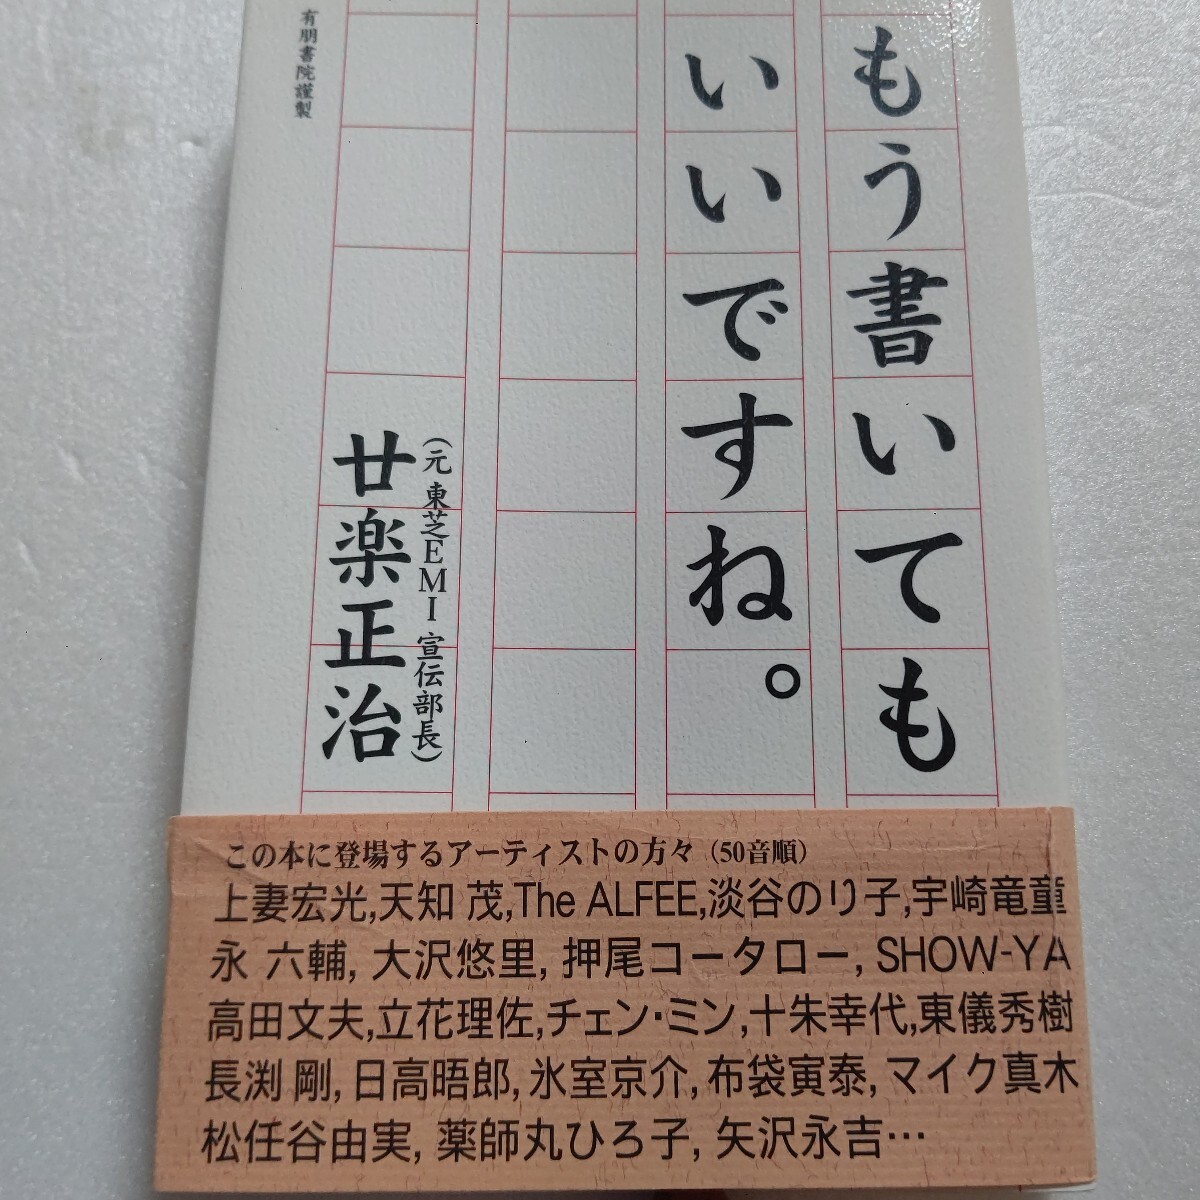 もう書いても
いいですね。
(元 東芝EMI 宣伝部長)
廿楽正治
有朋書院謹製
この本に登場するアーティストの方々（50音順）
上妻宏光,天知 茂,The ALFEE,淡谷のり子,宇崎竜童
永 六輔, 大沢悠里, 押尾コータロー, SHOW-YA
高田文夫,立花理佐,チェン・ミン,十朱幸代,東儀秀樹
長渕 剛, 日高晤郎, 氷室京介, 布袋寅泰, マイク真木
松任谷由実, 薬師丸ひろ子, 矢沢永吉…